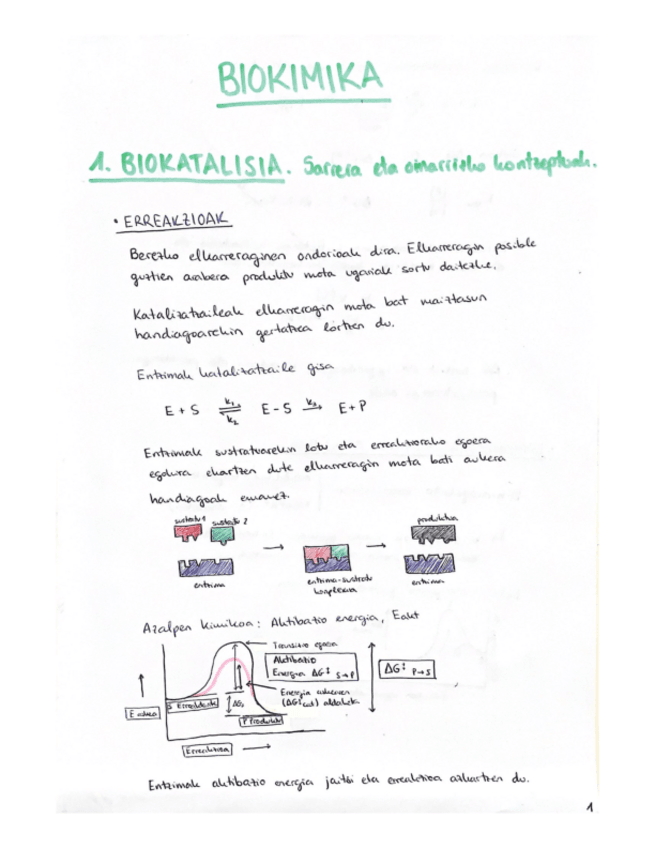 BIOKIMIKA
1. BIOKATALISIA. Sarrera eta oinarrizko kontzeptuak.
• ERREAKZIOAK
Berezko elkarreraginen ondorioak dira. Elkarreragin posible
guztien arabera produktu mota ugariak sortu daitezke.
Katalizatzaileak elkarreragin mota bat maiztasun
handiagoarekin gertatzea lortzen du.
Entzimak katalizatzaile gisa
E + S ⇌ E - S → E + P
k₁
k₂
k₃
Entzimak sustratuarekin lotu eta erreakziorako egoera
egokira ekartzen dute elkarreragin mota bati aukera
handiagoak emanez.
sustratu 1 sustratu 2
produktua
entzima
entzima-sustratu konplexua
entzima
Azalpen kimikoa: Aktibazio energia, Eakt
Transizio egoera
Aktibazio
Energia ΔG‡ S→P
ΔG‡ P→S
E askea
S Erreaktiboak
ΔG
P Produktuak
Energia askearen
aldaketa
Erreakzioa
Entzimak aktibazio energia jaitsi eta erreakzioa azkartzen du.
1